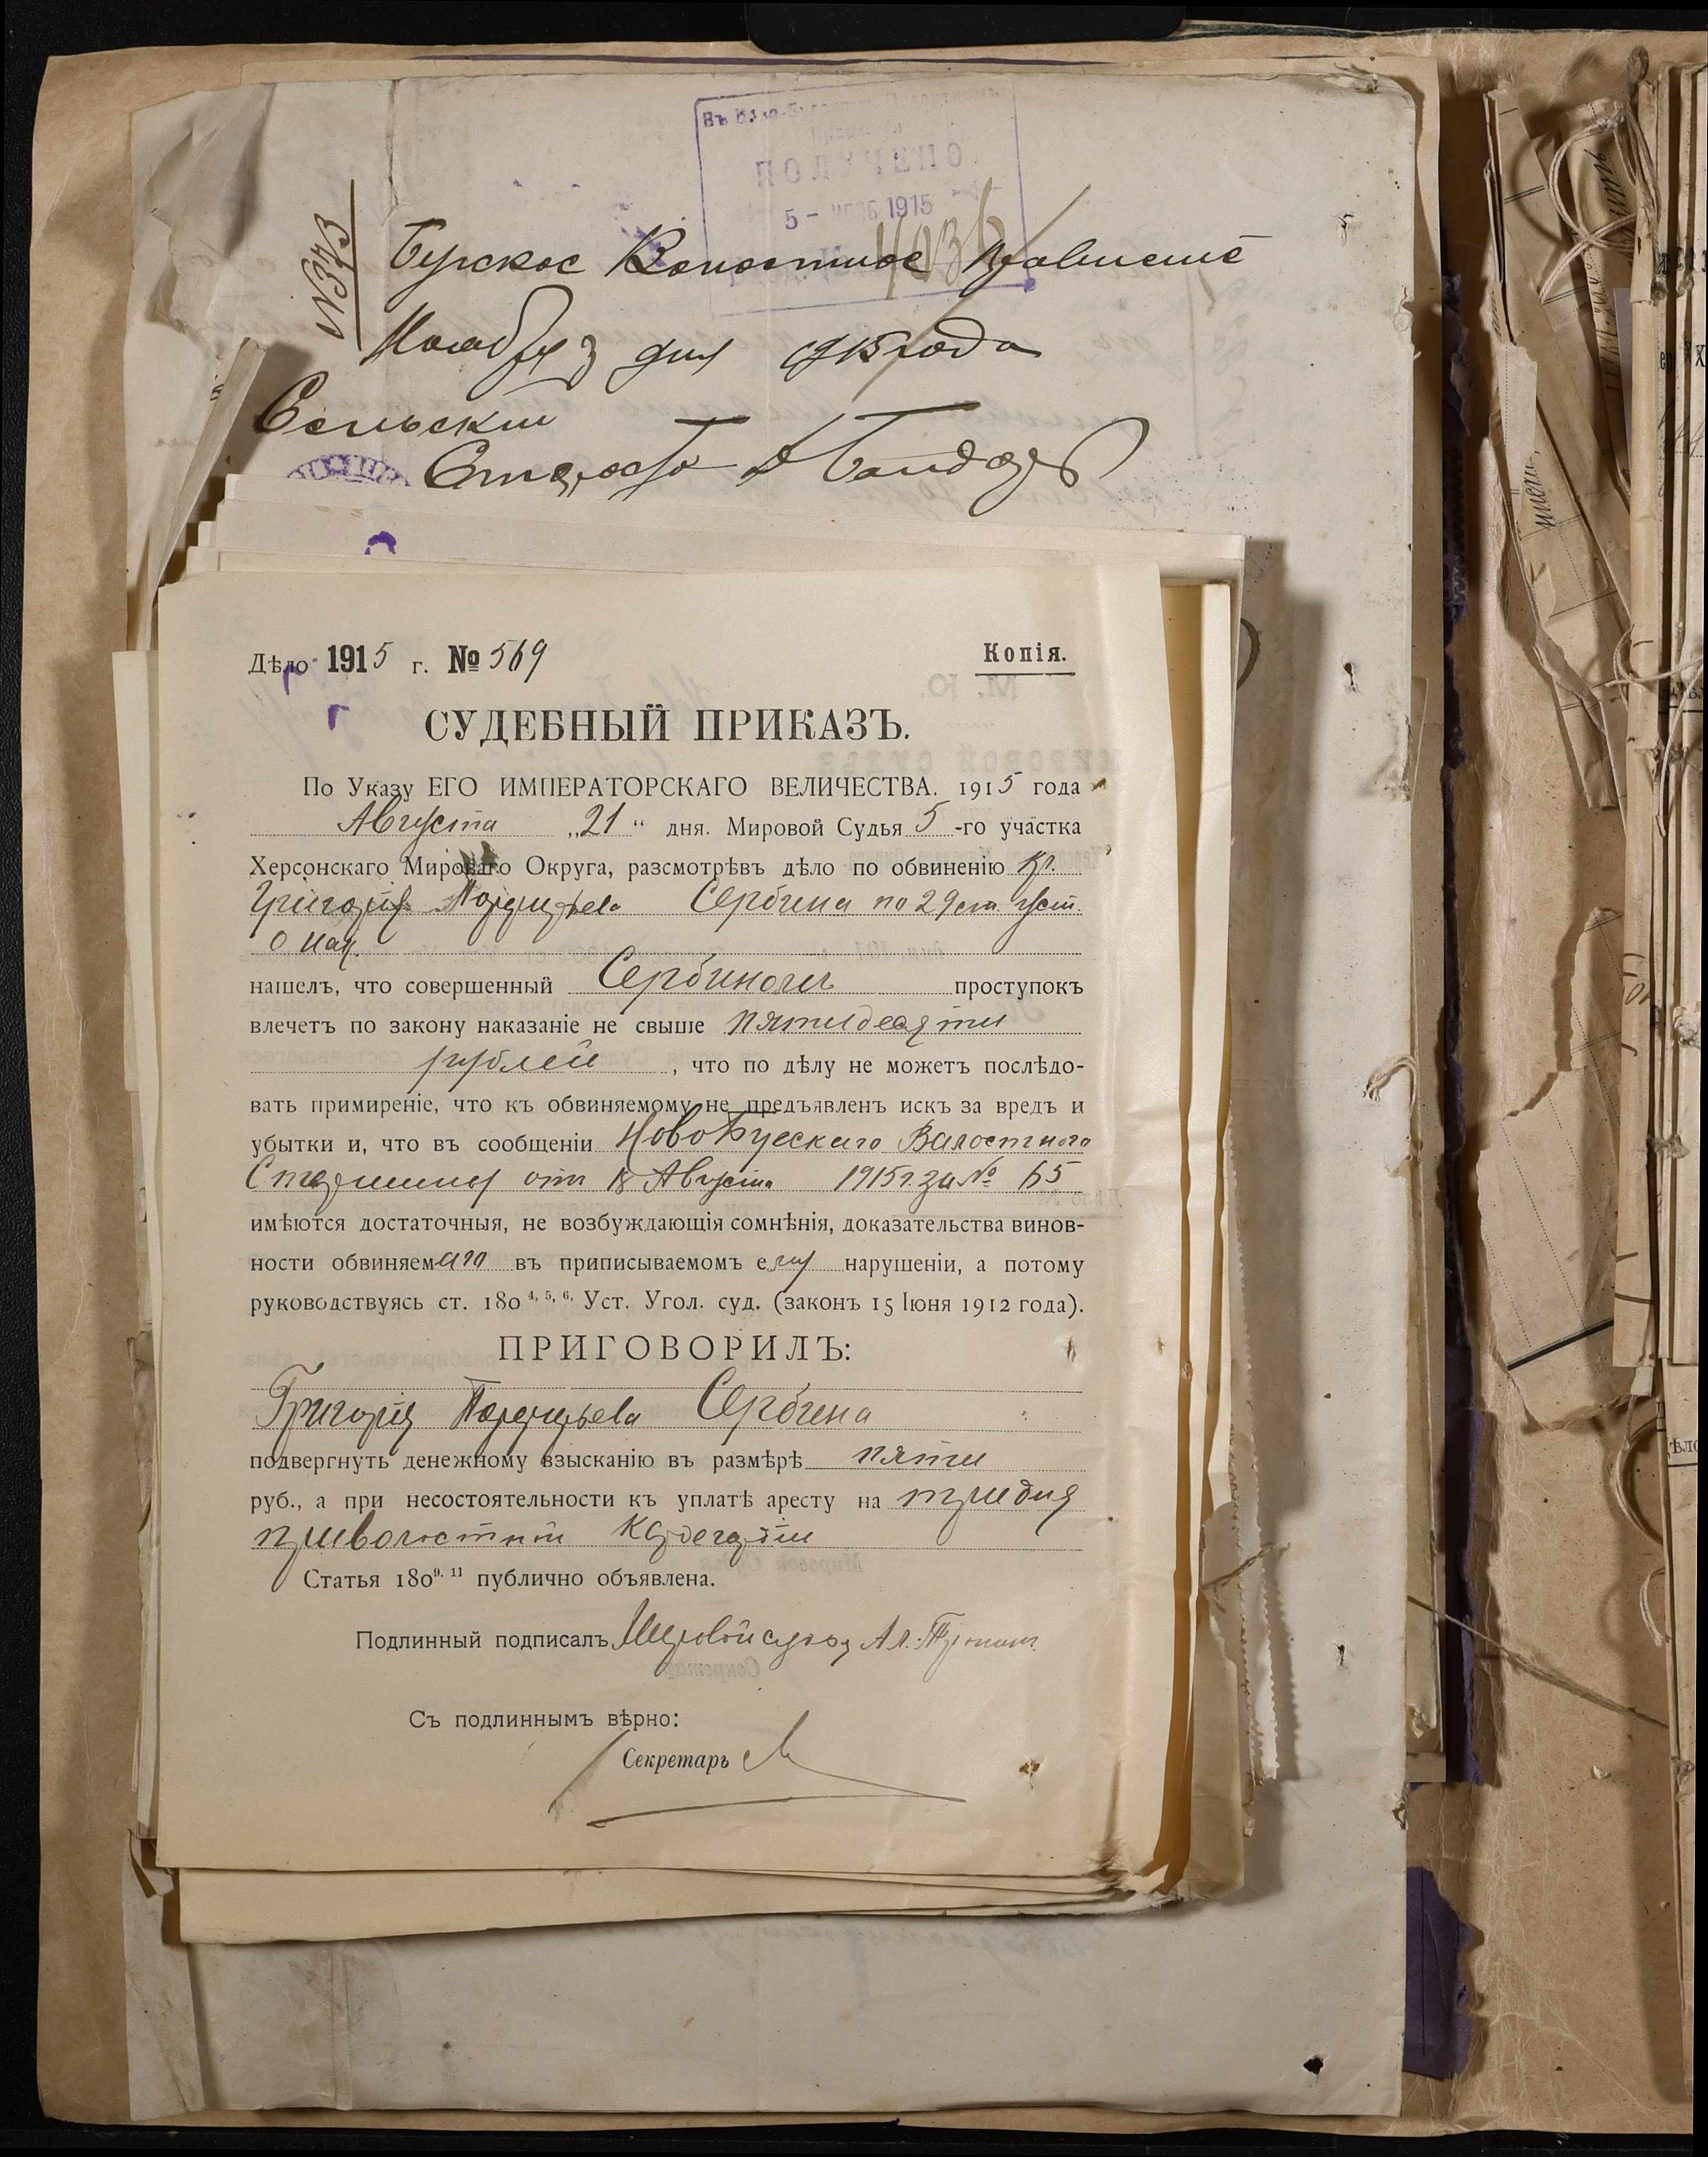 ПОЛУЧЕНО
5 - НОЯБ 1915
№ 373
Бугское Волостное Правление
Ноября 3 дня 1915 года
Сельский
Староста
Дѣло 1915 г. № 569
Копія.
СУДЕБНЫЙ ПРИКАЗЪ.
По Указу ЕГО ИМПЕРАТОРСКАГО ВЕЛИЧЕСТВА. 1915 года
Августа „21“ дня. Мировой Судья 5-го участка
Херсонскаго Мироваго Округа, разсмотрѣвъ дѣло по обвиненію кр.
Григорія Сербина по 29 ст. уст.
о нак.
нашелъ, что совершенный Сербиномъ проступокъ
влечетъ по закону наказаніе не свыше пятидесяти
рублей, что по дѣлу не можетъ послѣдо-
вать примиреніе, что къ обвиняемому не предъявленъ искъ за вредъ и
убытки и, что въ сообщеніи Ново Бугскаго Волостного
Старшины отъ 18 Августа 1915 г. за № 65
имѣются достаточныя, не возбуждающія сомнѣнія, доказательства винов-
ности обвиняемаго въ приписываемомъ ему нарушеніи, а потому
руководствуясь ст. 180 4, 5, 6, Уст. Угол. суд. (законъ 15 Іюня 1912 года).
ПРИГОВОРИЛЪ:
Григорія Сербина
подвергнуть денежному взысканію въ размѣрѣ пяти
руб., а при несостоятельности къ уплатѣ аресту на три дня
при волостной
Статья 180 9. 11 публично объявлена.
Подлинный подписалъ Мировой судья Ал.
Съ подлиннымъ вѣрно:
Секретарь